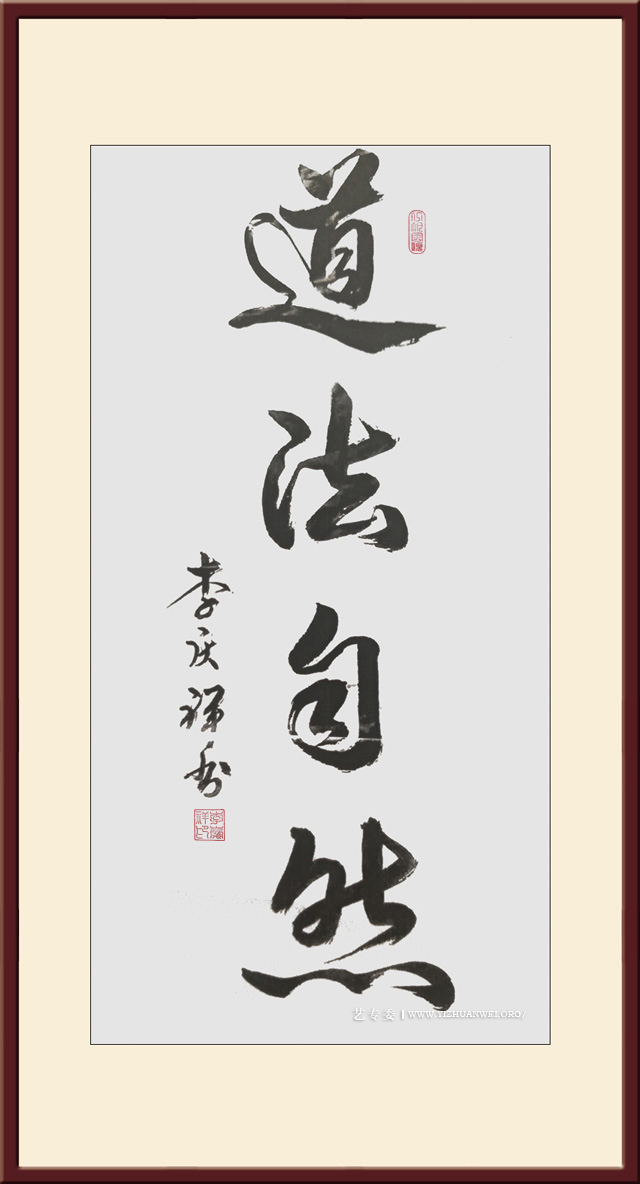 道法自然
李庆祥
李慶祥印
艺专委 | WWW.YIZHUANWEI.ORG/